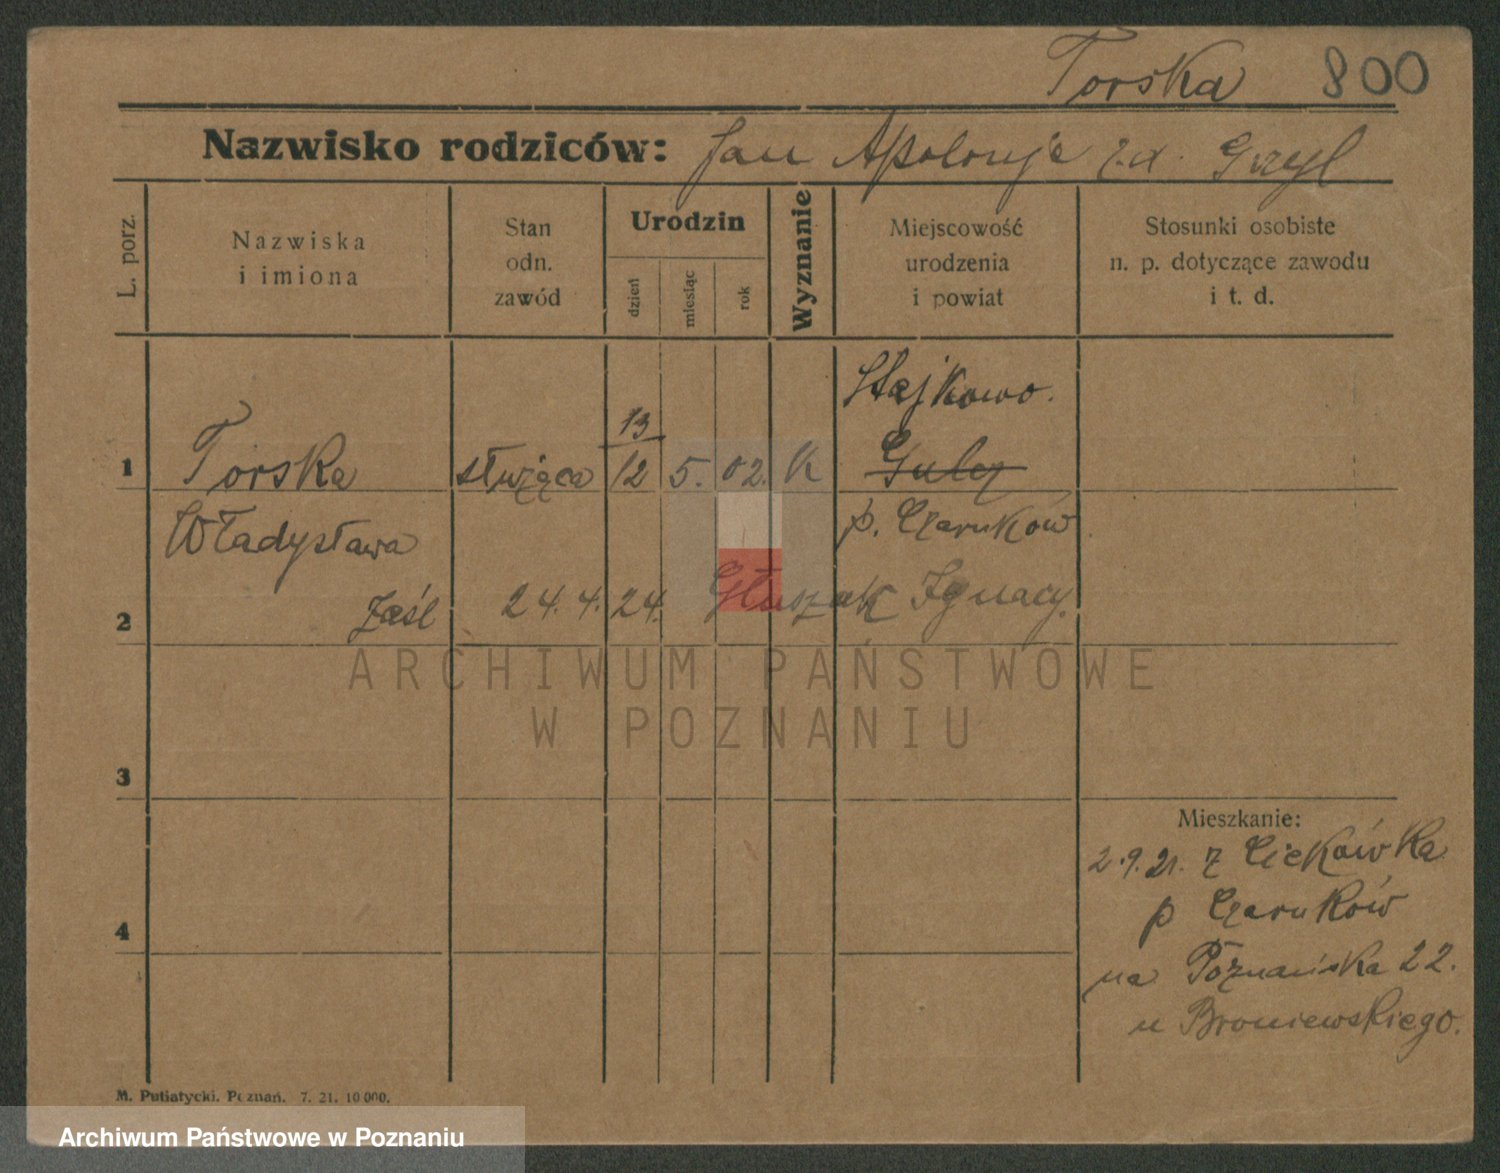 Torska 800
Nazwisko rodziców: Jan Apolonja z.d. Gzyl
L. porz.
Nazwiska
i imiona
Stan
odn.
zawód
Urodzin
dzień
miesiąc
rok
Wyznanie
Miejscowość
urodzenia
i powiat
Stosunki osobiste
n. p. dotyczące zawodu
i t. d.
Stajkowo.
13
1 Torska służąca 12 5. 02. K
Władysława p. Czarnków
2 Zaśl 24. 4. 24. Głuszak Ignacy.
ARCHIWUM PAŃSTWOWE
W POZNANIU
3
Mieszkanie:
2.9.21. z Ciszkówka
p Czarnków
4
na Poznańska 22.
u Broniewskiego.
M. Putiatycki. Poznań. 7. 21. 10 000.
Archiwum Państwowe w Poznaniu